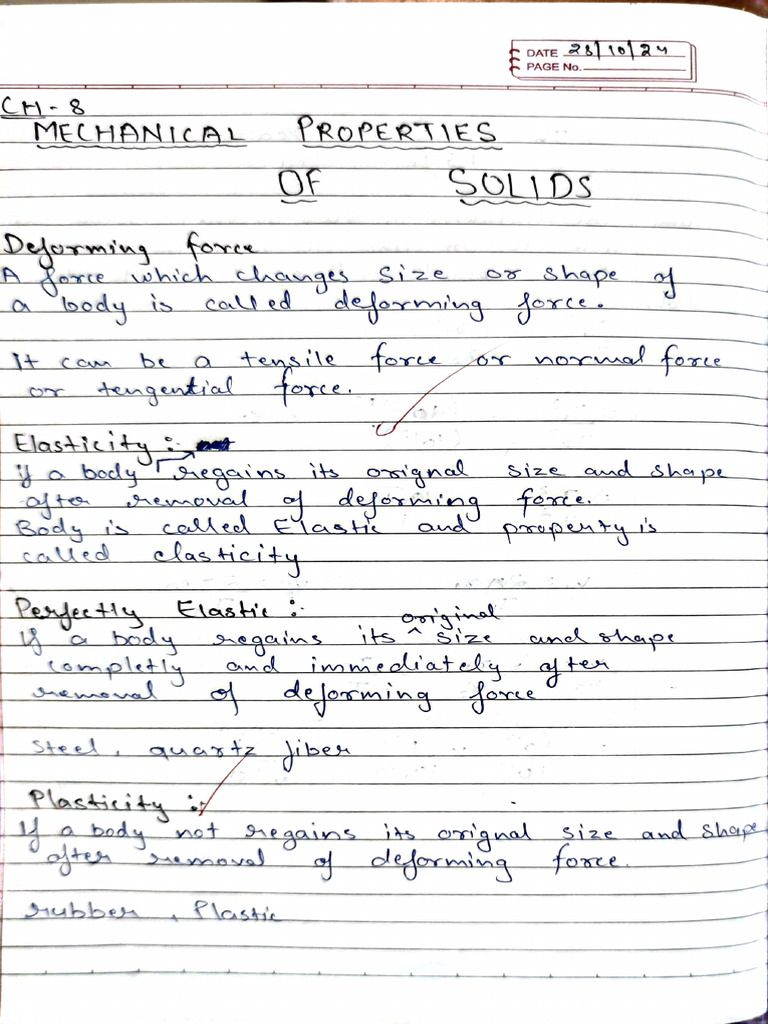 DATE 28/10/24
PAGE No.
CH-8
MECHANICAL PROPERTIES
OF SOLIDS
Deforming force
A force which changes size or shape of
a body is called deforming force.
It can be a tensile force or normal force
or tengential force.
Elasticity :
if a body regains its orignal size and shape
after removal of deforming force.
Body is called Elastic and property is
called elasticity
Perfectly Elastic :
original
If a body regains its ^ size and shape
completly and immediately after
removal of deforming force
Steel, quartz fiber
Plasticity :
If a body not regains its orignal size and shape
after removal of deforming force.
rubber, Plastic